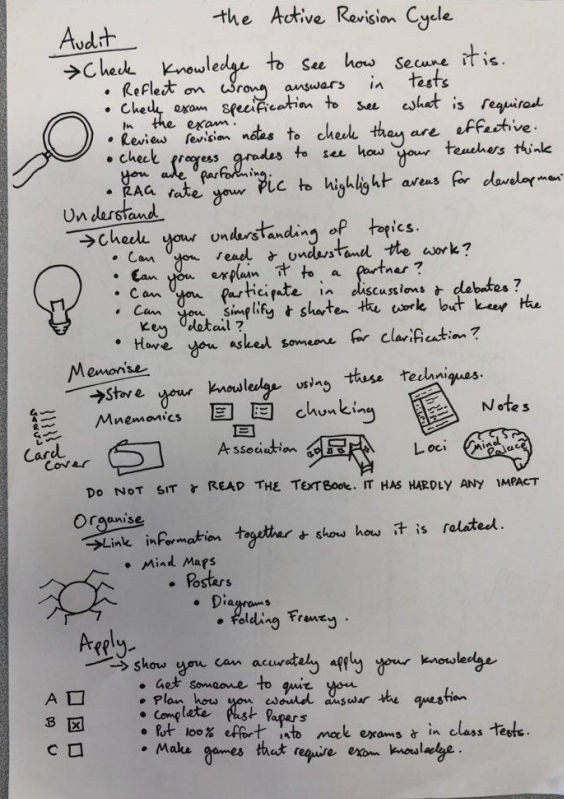 the Active Revision Cycle
Audit
→ Check knowledge to see how secure it is.
• Reflect on wrong answers in tests
• Check exam specification to see what is required
in the exam.
• Review revision notes to check they are effective.
• Check progress grades to see how your teachers think
you are parforming.
• RAG rate your PLC to highlight areas for developmen
Understand
→ Check your understanding of topics.
• Can you read & understand the work?
• Can you explain it to a partner?
• Can you participate in discussions & debates?
• Can you simplify & shorten the work but keep the
key detail?
• Have you asked someone for clarification?
Memorise
→ Store your knowledge using these techniques.
Mnemonics chunking Notes
Card
Cover
Association Loci Mind
Palace
DO NOT SIT & READ THE TEXTBOOK. IT HAS HARDLY ANY IMPACT
Organise
→ Link information together & show how it is related.
• Mind Maps
• Posters
• Diagrams
• Folding Frenzy.
Apply
→ show you can accurately apply your knowledge
• Get someone to quiz you
A • Plan how you would answer the question
• Complete Past Papers
B • Put 100% effort into mock exams & in class tests.
C • Make games that require exam knowledge.